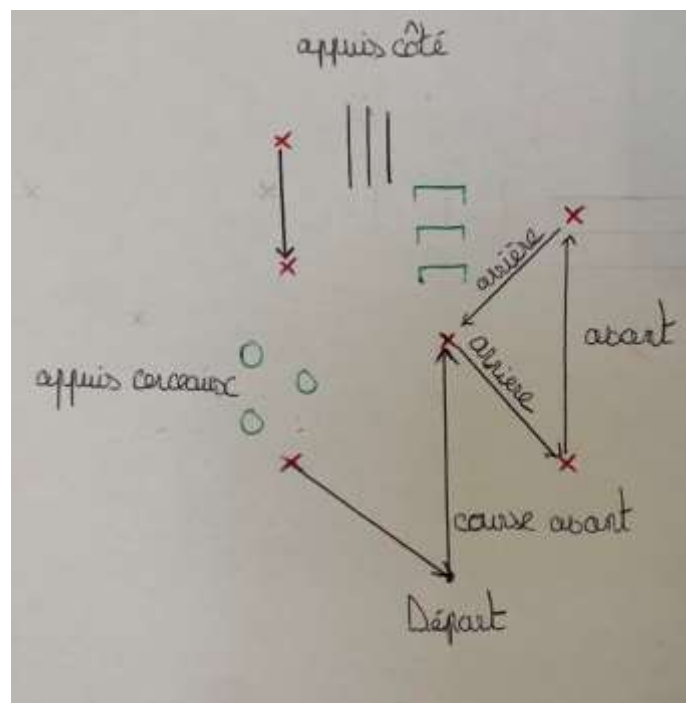 appuis côté
arrière
avant
arrière
appuis cerceaux
course avant
Départ